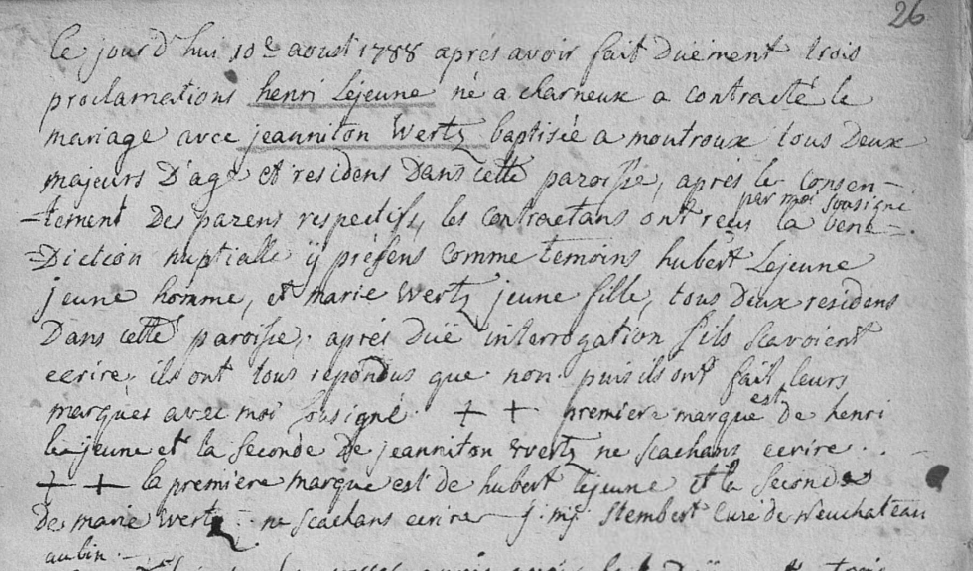 26
Ce jour d'hui 10e aoust 1788 aprés avoir fait duëment trois
proclamations henri Lejeune né a charneux a contracté le
mariage avec jeanniton Wertz baptisée a moutroux tous deux
majeurs d'age et residens dans cette paroisse, aprés le consen-
-tement des parens respectifs, les contractans ont reçus par moi sousigné la bene-
-diction nuptialle ÿ présens comme temoins hubert Lejeune
jeune homme, et marie Wertz jeune fille, tous deux residens
dans cette paroisse. aprés duë interrogation s'ils scavoient
ecrire, ils ont tous repondus que non puis ils ont fait leurs
marques avec moi sousigné + + premiere marque est de henri
le jeune et la seconde de jeanniton Wertz ne scachans ecrire..
+ + la premiere marque est de hubert lejeune et la seconde
de marie Wertz ne scachans ecrire j: Stembert Curé de Neuchateau
aubin.